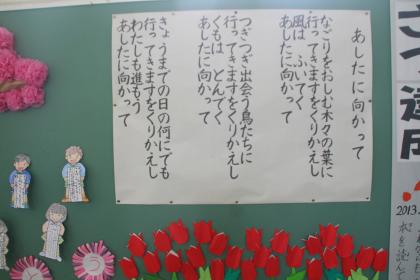 あしたに向かって
なごりをおしむ木々の葉に
行ってきますをくりかえし
風は ふいてく
あしたに向かって
つぎつぎ出会う鳥たちに
行ってきますをくりかえし
くもは とんでく
あしたに向かって
きょうまでの日の何にでも
行ってきますをくりかえし
わたしも進もう
あしたに向かって
2013.